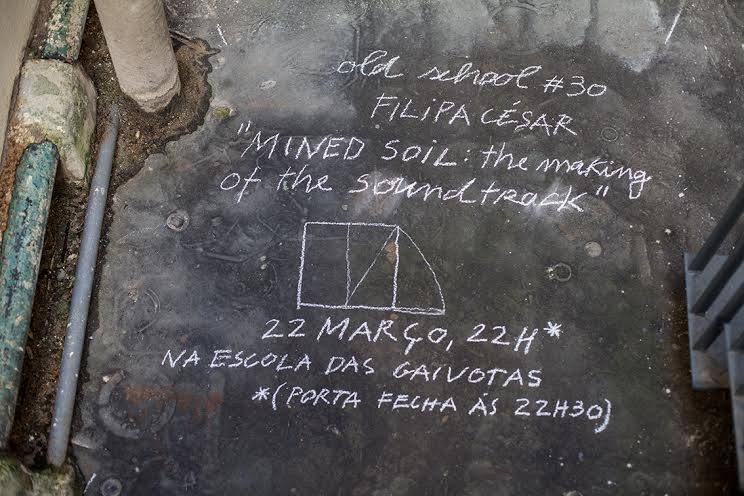 old school #30
FILIPA CÉSAR
"MINED SOIL: the making
of the soundtrack"
22 MARÇO, 22H*
NA ESCOLA DAS GAIVOTAS
*(PORTA FECHA ÁS 22H30)